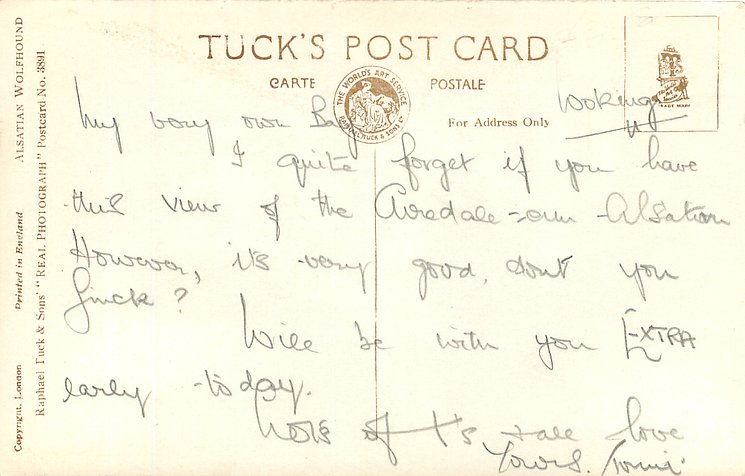 TUCK'S POST CARD
CARTE POSTALE
THE WORLD'S ART SERVICE
RAPHAEL TUCK & SONS LD
For Address Only
TRADE MARK
Copyright, London Printed in England ALSATIAN WOLFHOUND
Raphael Tuck & Sons' "REAL PHOTOGRAPH" Postcard No. 3891
Woking
My very own
I quite forget if you have
this view of the Airedale-cum-Alsatian
However, it's very good, don't you
finck?
Will be with you EXTRA
early to-day.
Lots of X's + all love
Yours,